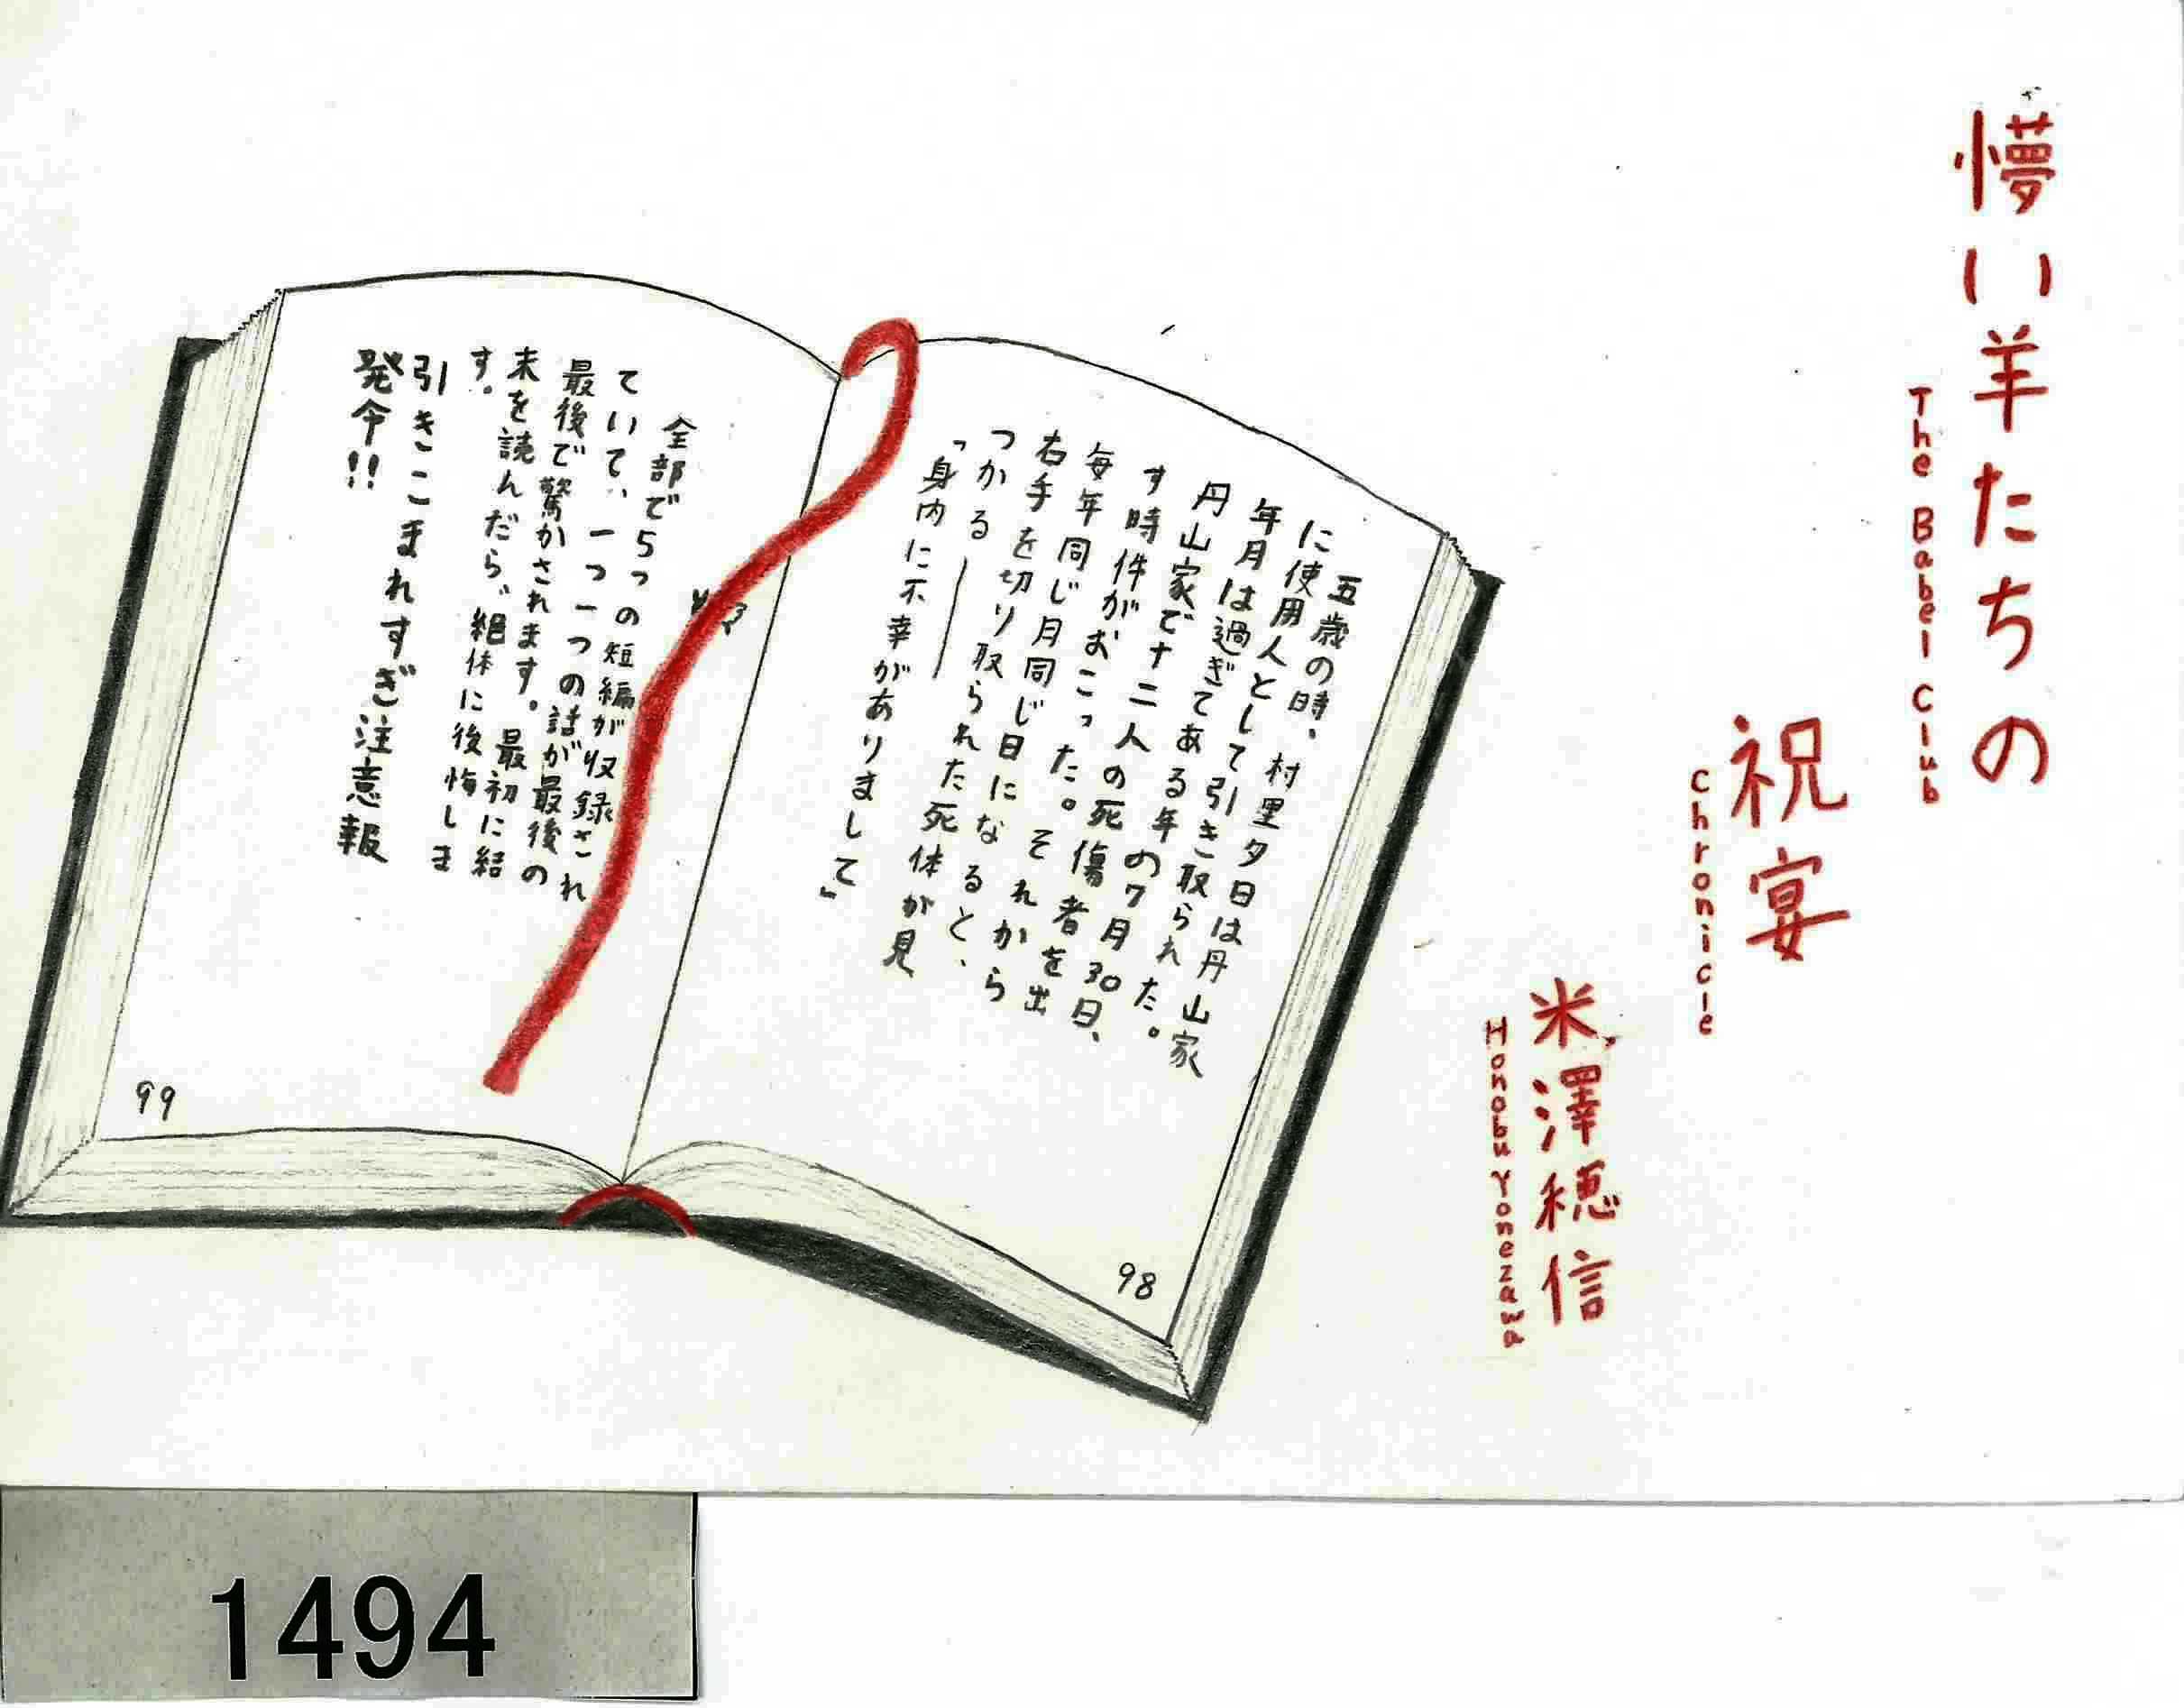 懜い羊たちの
The Babel Club
祝宴
Chronicle
米澤穂信
Honobu Yonezawa
五歳の時、村里夕日は丹山家
に使用人として引き取られた。
年月は過ぎてある年の7月30日、
丹山家で十二人の死傷者を出
す時件がおこった。それから
毎年同じ月同じ日になると、
右手を切り取られた死体が見
つかる――
「身内に不幸がありまして」
98
全部で5つの短編が収録され
ていて、一つ一つの話が最後の
最後で驚かされます。最初に結
末を読んだら、絶体に後悔しま
す。
引きこまれすぎ注意報
発令!!
99
1494